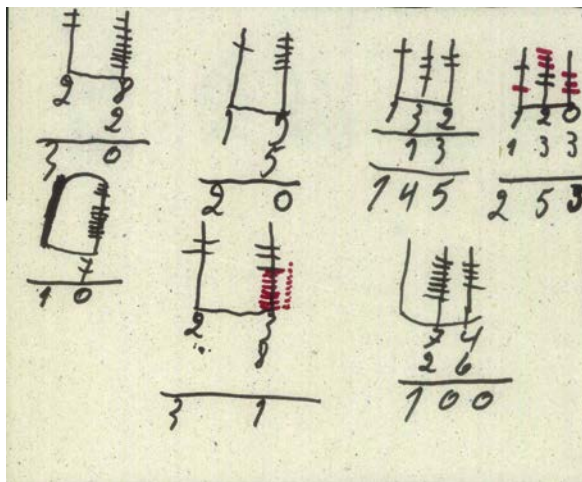 2 8
2
3 0
1 5
5
2 0
1 3 2
1 3
1 4 5
1 2 0
1 3 3
2 5 3
1 0
2 3
8
3 1
7 4
2 6
1 0 0